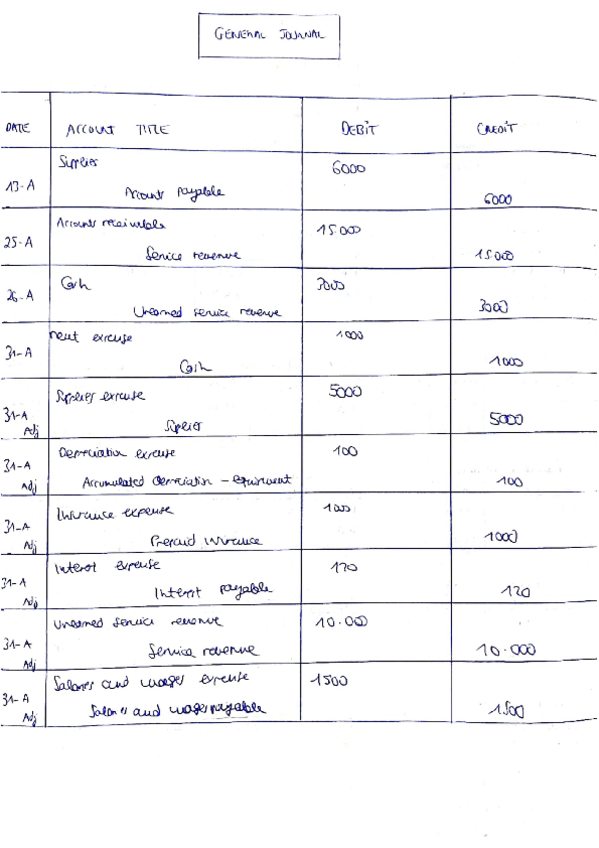 GENERAL JOURNAL
DATE ACCOUNT TITLE DEBIT CREDIT
13-A Supplies 6000
Accounts payable 6000
25-A Accounts receivable 15000
Service revenue 15000
26-A Cash 3000
Unearned service revenue 3000
31-A rent expense 1000
Cash 1000
31-A Adj Supplies expense 5000
Supplies 5000
31-A Adj Depreciation expense 100
Accumulated depreciation - equipment 100
31-A Adj Insurance expense 1000
Prepaid insurance 1000
31-A Adj Interest expense 120
Interest payable 120
31-A Adj Unearned service revenue 10.000
Service revenue 10.000
31-A Adj Salaries and wages expense 1500
Salaries and wages payable 1500